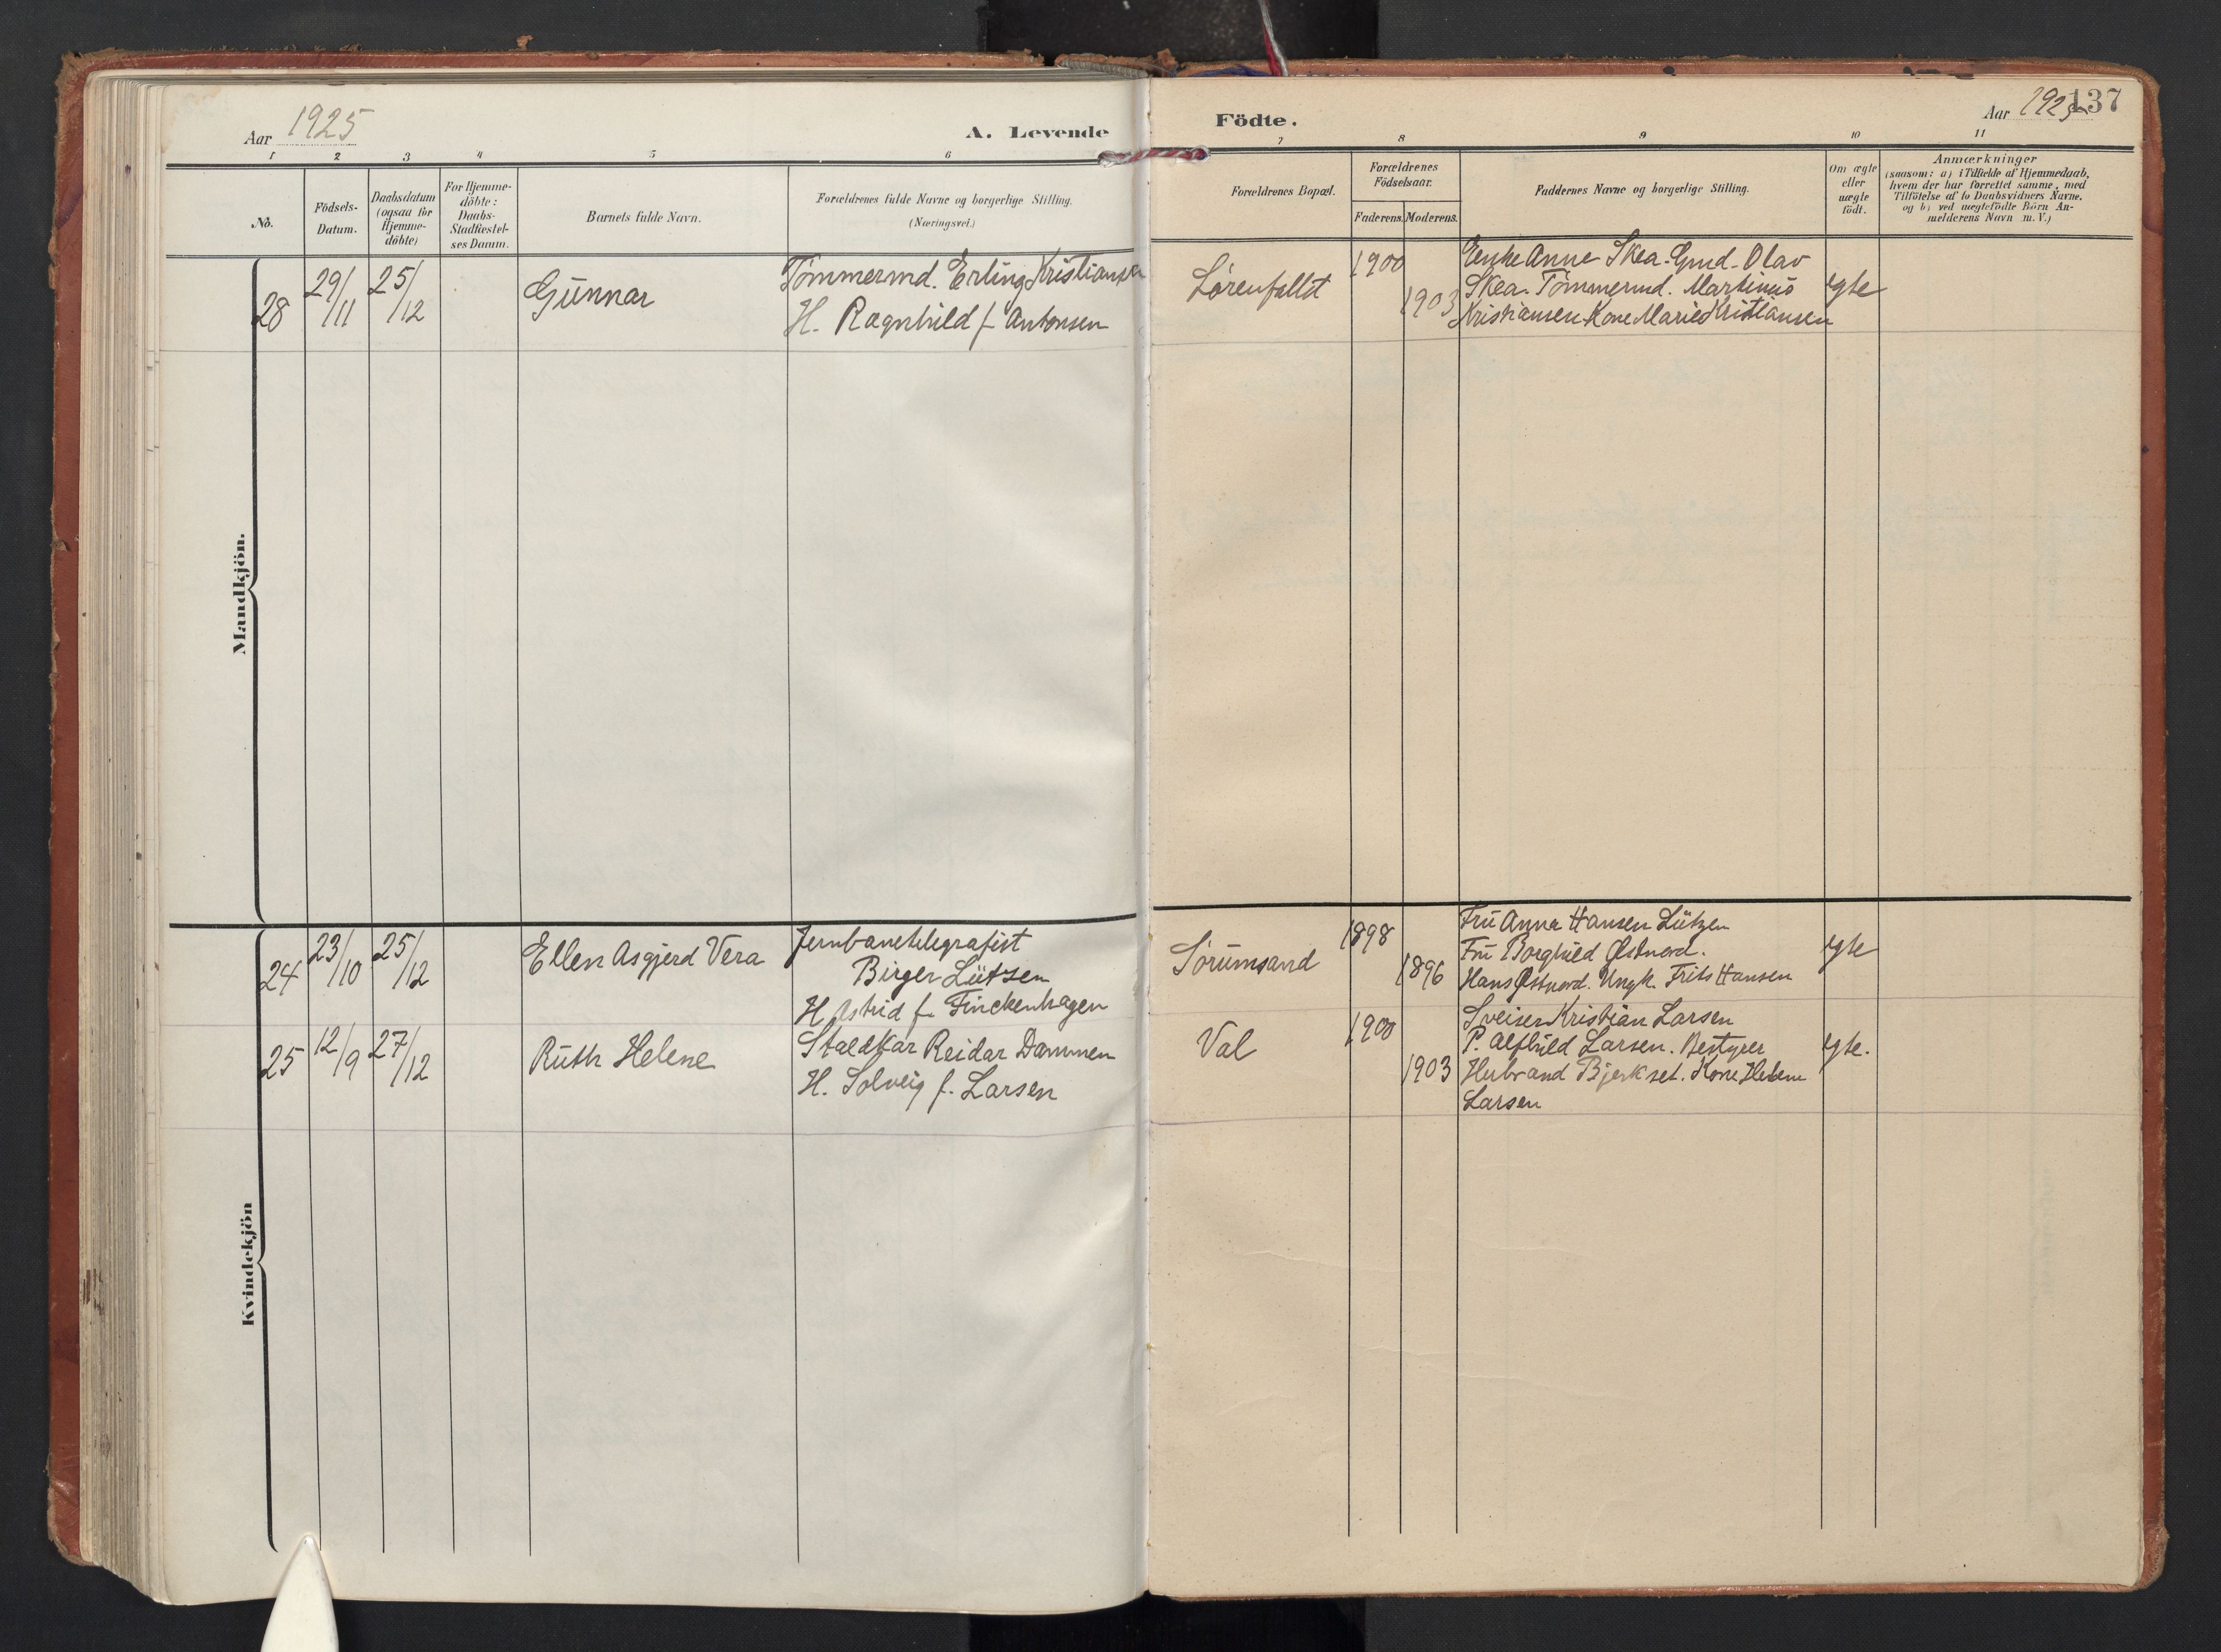 Aar 1925
A. Levende
Födte.
Aar 1925
137
1 2 3 4 5 6
7 8 9 10 11
No.
Födsels-
Datum.
Daabsdatum
(ogsaa for
Hjemme-
döbte)
For Hjemme-
döbte:
Daabs-
Stadfæstel-
ses Datum.
Barnets fulde Navn.
Forældrenes fulde Navne og borgerlige Stilling.
(Næringsvei.)
Forældrenes Bopæl.
Forældrenes
Födselsaar.
Faderens. Moderens.
Faddernes Navne og borgerlige Stilling.
Om ægte
eller
uægte
født.
Anmærkninger
(saasom: a) i Tilfælde af Hjemmedaab,
hvem der har forrettet samme, med
Tilföielse af to Daabsvidners Navne,
og b) ved uægtefödte Börn An-
melderens Navn m. V.)
Mandkjön.
28 29/11 25/12 Gunnar
Tømmermd. Erling Kristiansen
H. Ragnhild f. Antonsen
Lørenfallet
1900
1903
Enke Anne Skea. Gmd. Olav
Skea. Tømmermd. Martinus
Kristiansen Kone Marie Kristiansen
egte
Kvindekjön
24 23/10 25/12 Ellen Asgjerd Vera
Jernbanetelegrafist
Birger Lützen
H. Astrid f. Finckenhagen
Sørumsand
1898
1896
Fru Anna Hansen Lützen
Fru Borghild Østnord.
Hans Østnord. Ungk. Frits Hansen
egte
25 12/9 27/12 Ruth Helene
Staldkar Reidar Dammen
H. Solveig f. Larsen
Val
1900
1903
Sveiser Kristian Larsen
P. Alfhild Larsen. Bestyrer
Herbrand Bjerkset. Kone Helene
Larsen
egte.